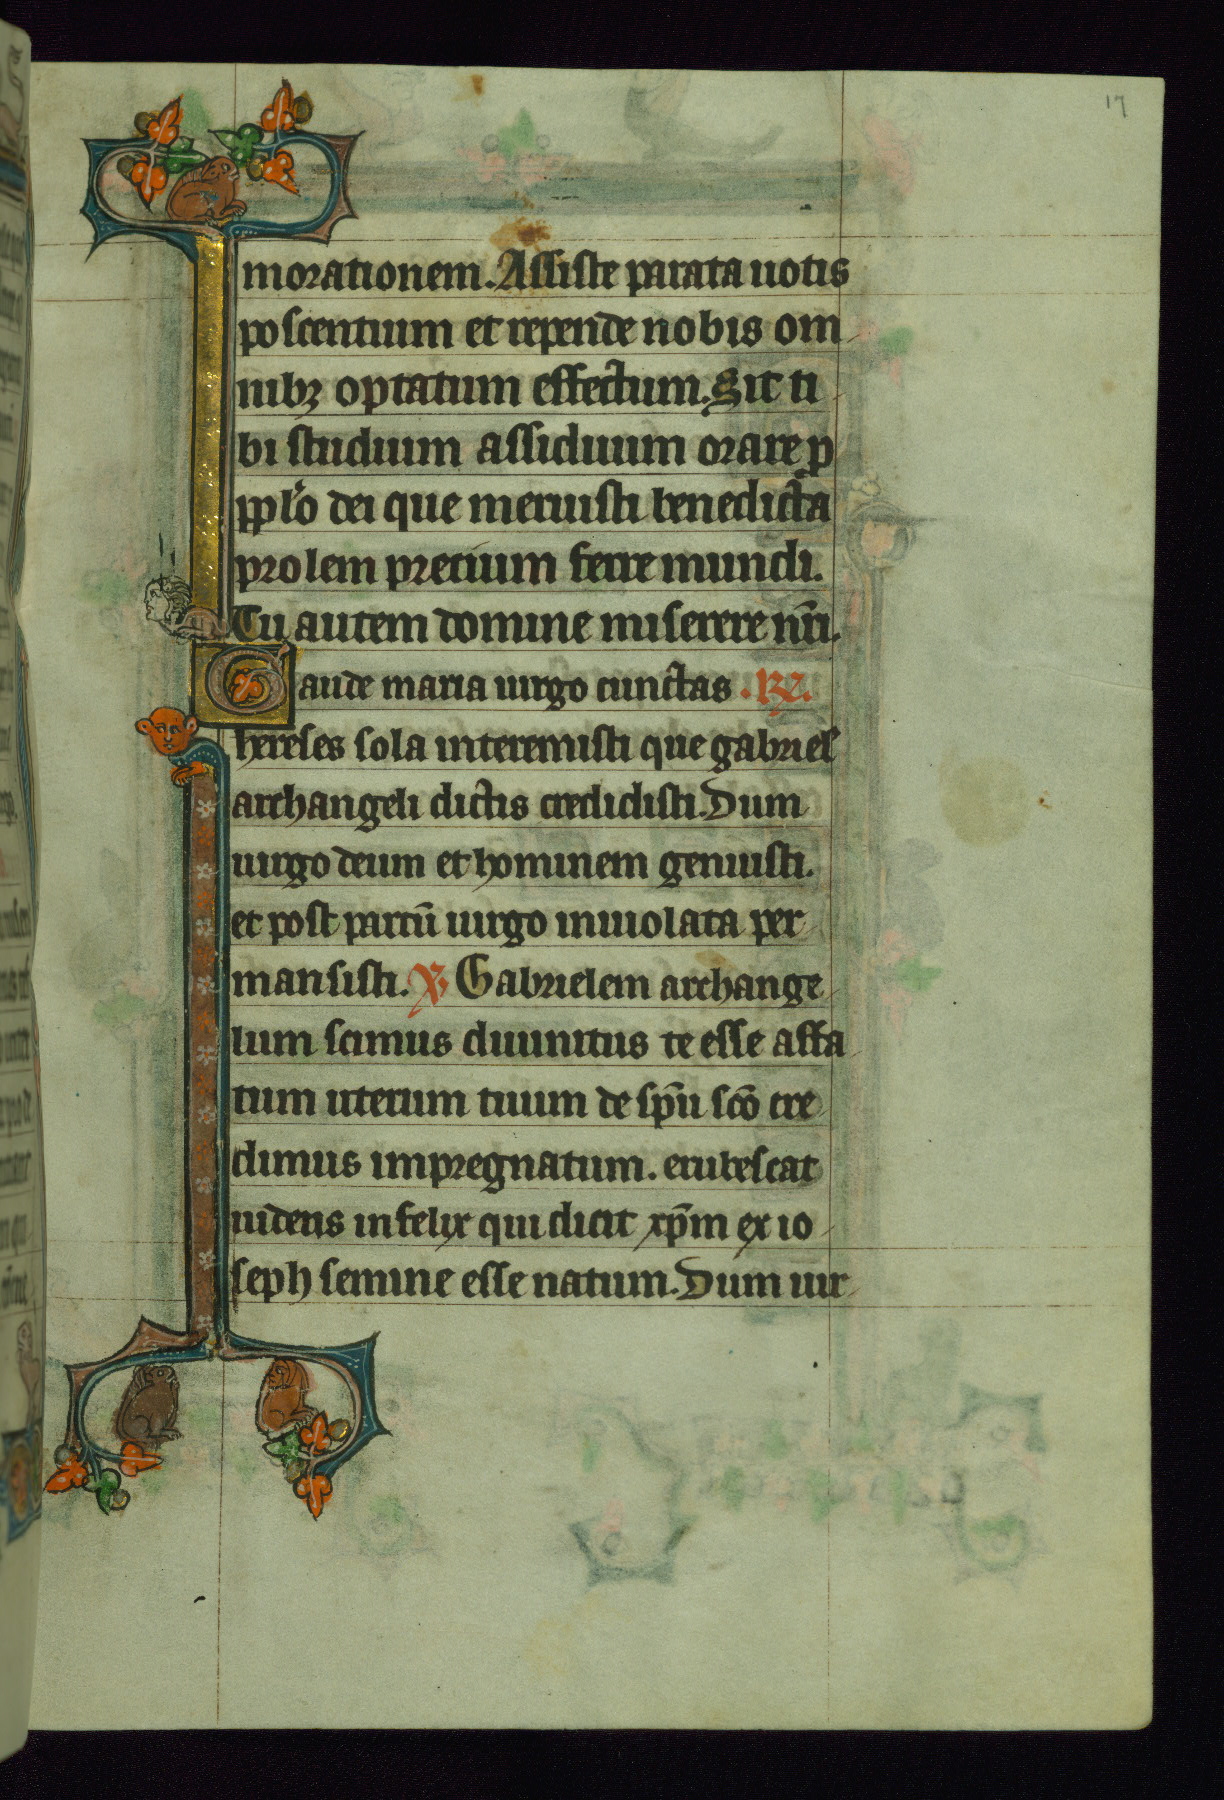 17
morationem. Assiste parata uotis
poscentium et repende nobis om
nibꝫ optatum effectum. Sit ti
bi studium assiduum orare ꝓ
pplo dei que meruisti benedicta
prolem precium ferre mundi.
Tu autem domine miserere nr̄i.
Gaude maria uirgo cunctas .℟.
hereses sola interemisti que gabriel
archangeli dictis credidisti. Dum
uirgo deum et hominem genuisti.
et post partū uirgo inuiolata per
mansisti. ℣ Gabrielem archange
lum scimus diuinitus te esse affa
tum uterum tuum de sp̄u sc̄o cre
dimus impregnatum. erubescat
iudeus infelix qui dicit xp̄m ex io
seph semine esse natum. Dum uir